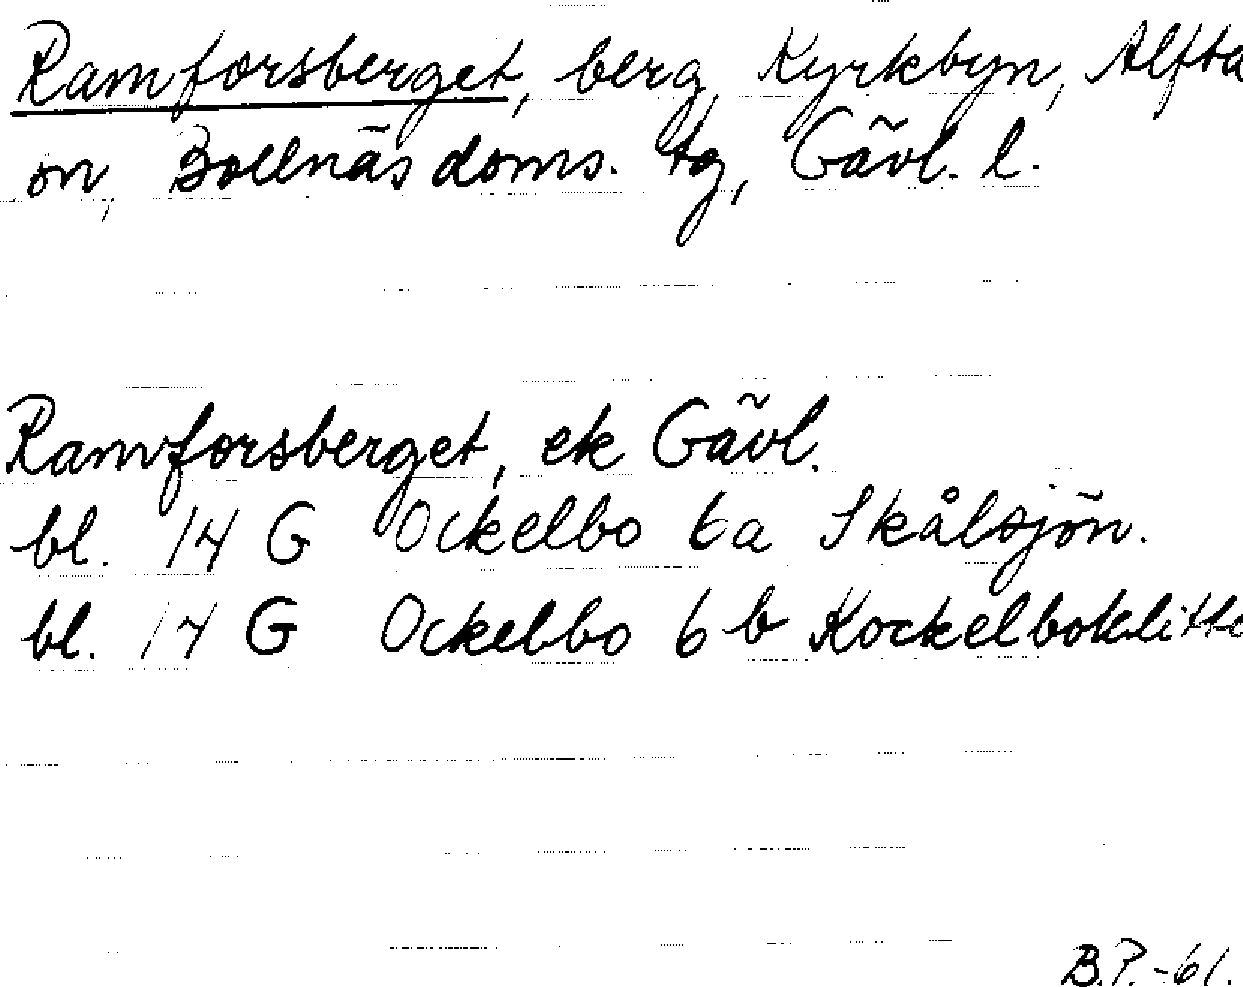 Ramforsberget, berg, Kyrkbyn, Alfta
sn, Bollnäs doms. tg, Gävl. l.
Ramforsberget, ek Gävl.
bl. 14 G Ockelbo 6a Skålsjön.
bl. 14 G Ockelbo 6 b Kockelboklitte
B.P.-61.